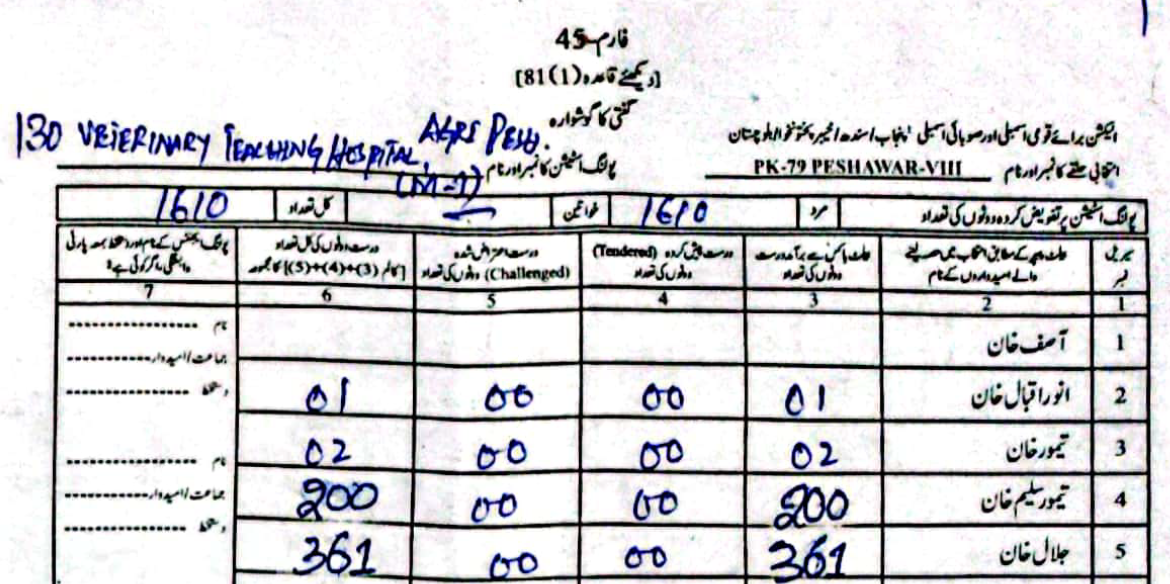 فارم-45
[دیکھئے قاعدہ 81(1)]
گنتی کا گوشوارہ
الیکشن برائے قومی اسمبلی اور صوبائی اسمبلی پنجاب/سندھ/خیبر پختونخوا/بلوچستان
انتخابی حلقے کا نمبر اور نام PK-79 PESHAWAR-VIII
پولنگ اسٹیشن کا نمبر اور نام 130 VETERINARY TEACHING HOSPITAL, AGRI PESH. (M-1)
پولنگ اسٹیشن پر تفویض کردہ ووٹوں کی تعداد مرد 1610 خواتین — کل تعداد 1610
سیریل نمبر
والے امیدواروں کے نام
ووٹوں کی تعداد
درست پیش کردہ (Tendered) ووٹوں کی تعداد
درست اعتراض شدہ (Challenged) ووٹوں کی تعداد
درست ووٹوں کی کل تعداد [کالم (3)+(4)+(5) کا مجموعہ]
1 2 3 4 5 6 7
1 آصف خان
2 انور اقبال خان 01 00 00 01
3 تیمور خان 02 00 00 02
4 تیمور سلیم خان 200 00 00 200
5 جلال خان 361 00 00 361
نام
جماعت/امیدوار
دستخط
نام
جماعت/امیدوار
دستخط